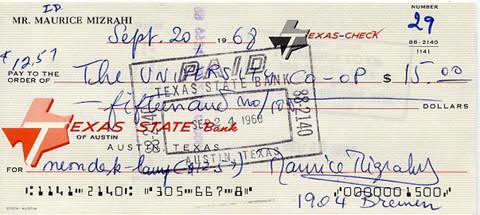 I.D.
MR. MAURICE MIZRAHI
NUMBER
29
Sept. 20 1968
TEXAS-CHECK
88-2140
1141
$12.57
PAY TO THE
ORDER OF The UNIVERSITY CO-OP $ 15.00
PAID
TEXAS STATE BANK
88-2140
SEP 24 1968
AUSTIN, TEXAS
fifteen and no/100 DOLLARS
TEXAS STATE Bank
OF AUSTIN
AUSTIN, TEXAS
FOR Maurice Mizrahi
1904 Bremen
⑆1141⑉2140⑆ ⑈305⑉667⑉8⑈ ⑈0000001500⑈